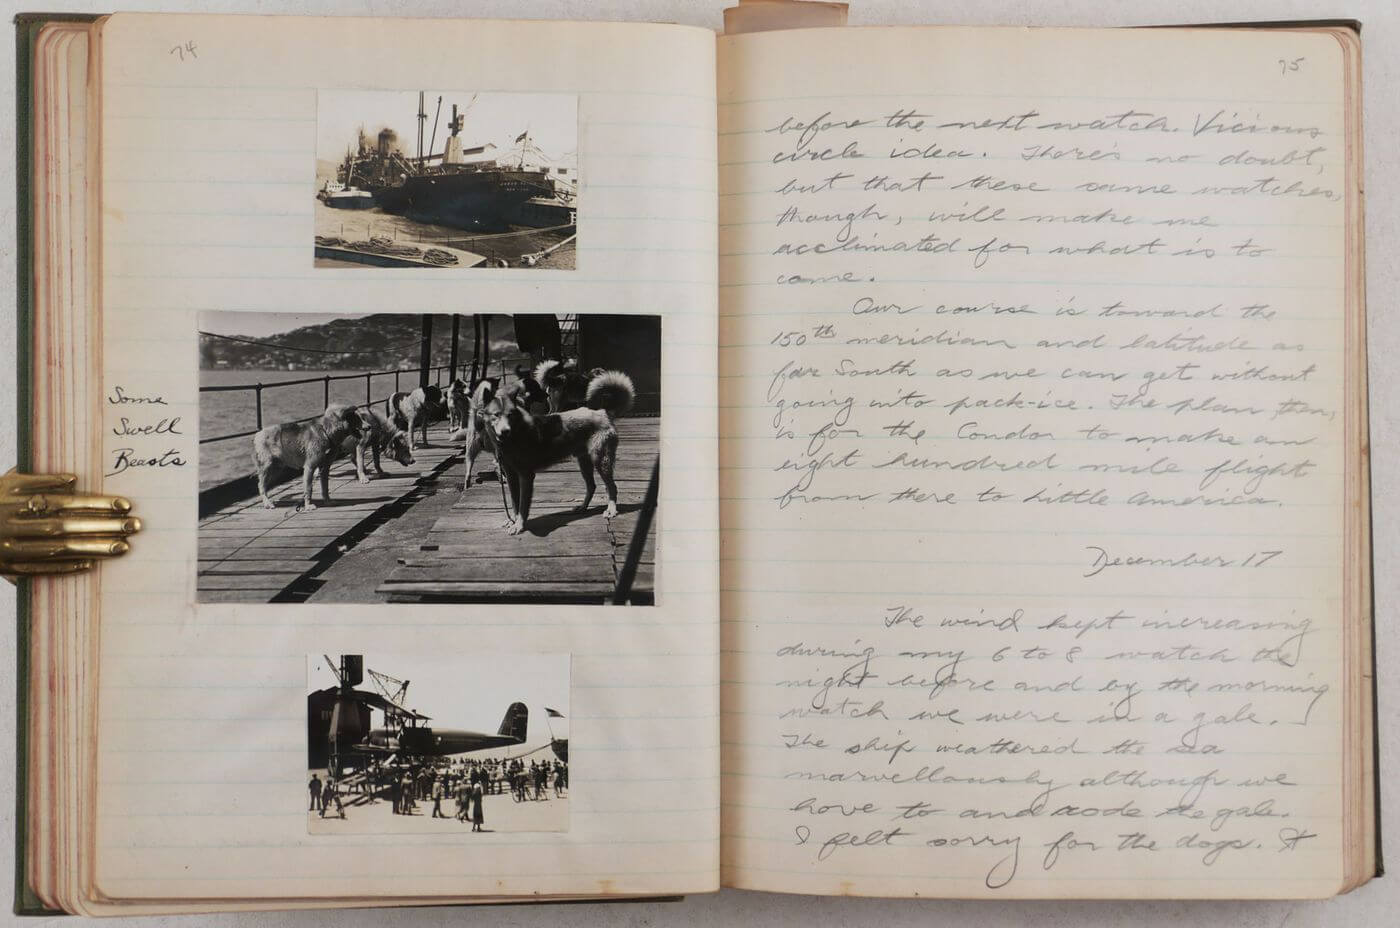 74
Some
Swell
Beasts
75
before the next watch. Vicious
circle idea. There's no doubt,
but that these same watches,
though, will make me
acclimated for what is to
come.
Our course is toward the
150th meridian and latitude as
far South as we can get without
going into pack-ice. The plan, then,
is for the Condor to make an
eight hundred mile flight
from there to Little America.
December 17
The wind kept increasing
during my 6 to 8 watch the
night before and by the morning
watch we were in a gale.
The ship weathered the sea
marvellously although we
hove to and rode the gale.
I felt sorry for the dogs. It